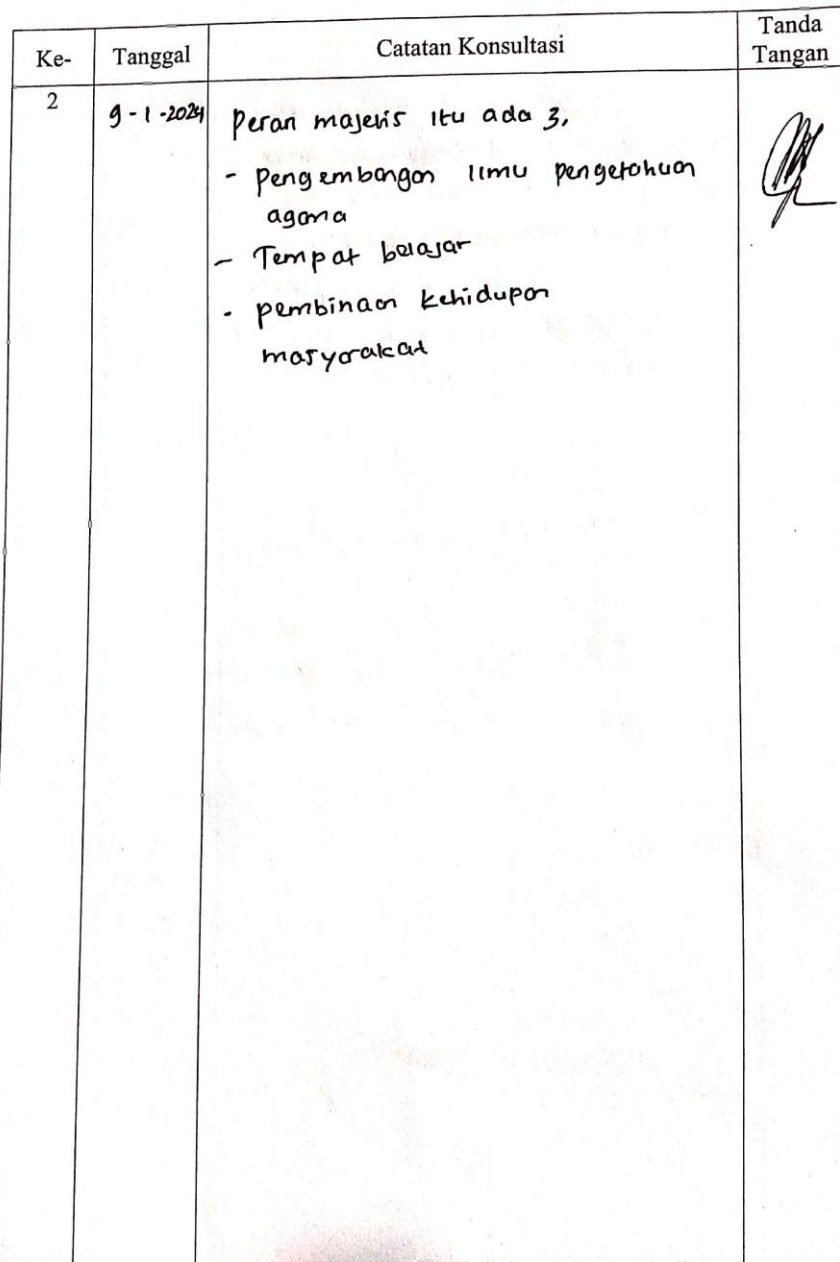 Ke- Tanggal Catatan Konsultasi Tanda Tangan
2 9-1-2024 Peran majelis itu ada 3,
- Pengembangan ilmu pengetahuan
agama
- Tempat belajar
- pembinaan kehidupan
masyarakat